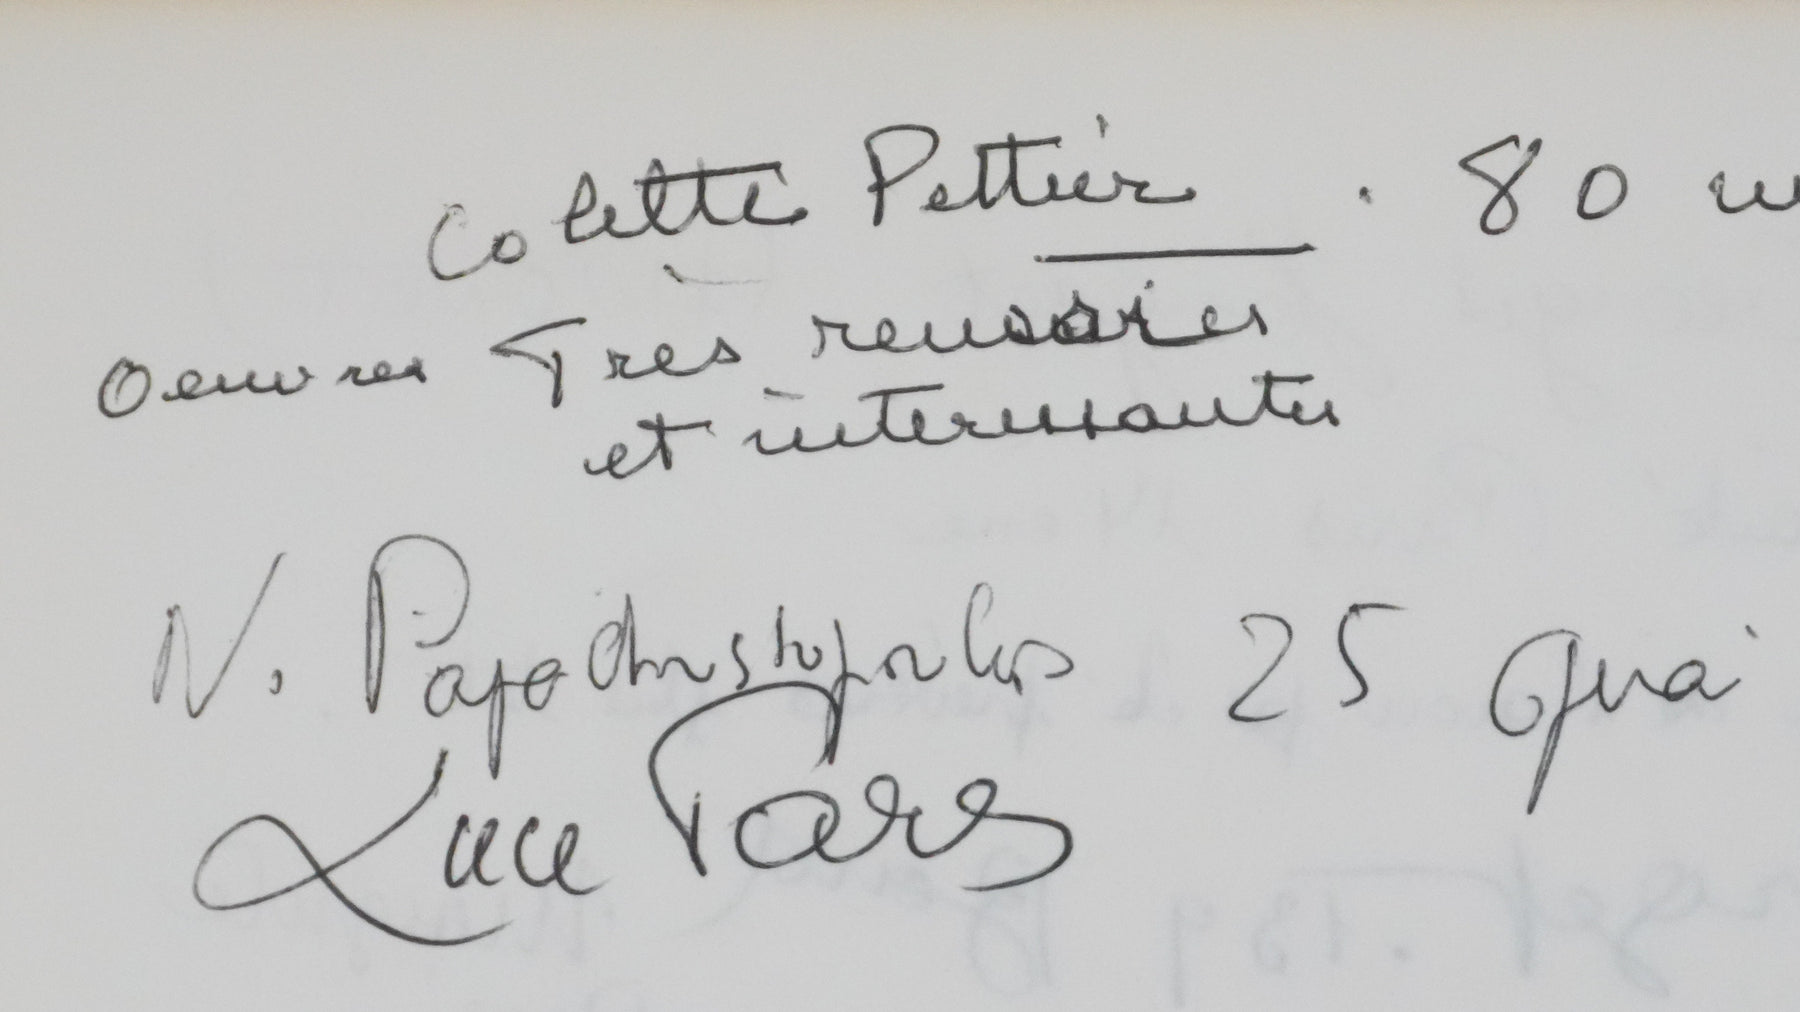 Colette Pettier . 80
Oeuvres Très reussies
et interessantes
N. Papachristopoulos 25 Quai
Luce